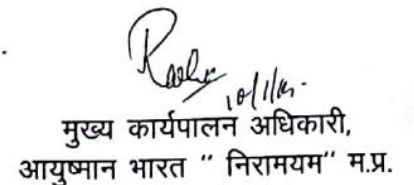 मुख्य कार्यपालन अधिकारी,
आयुष्मान भारत " निरामयम" म.प्र.